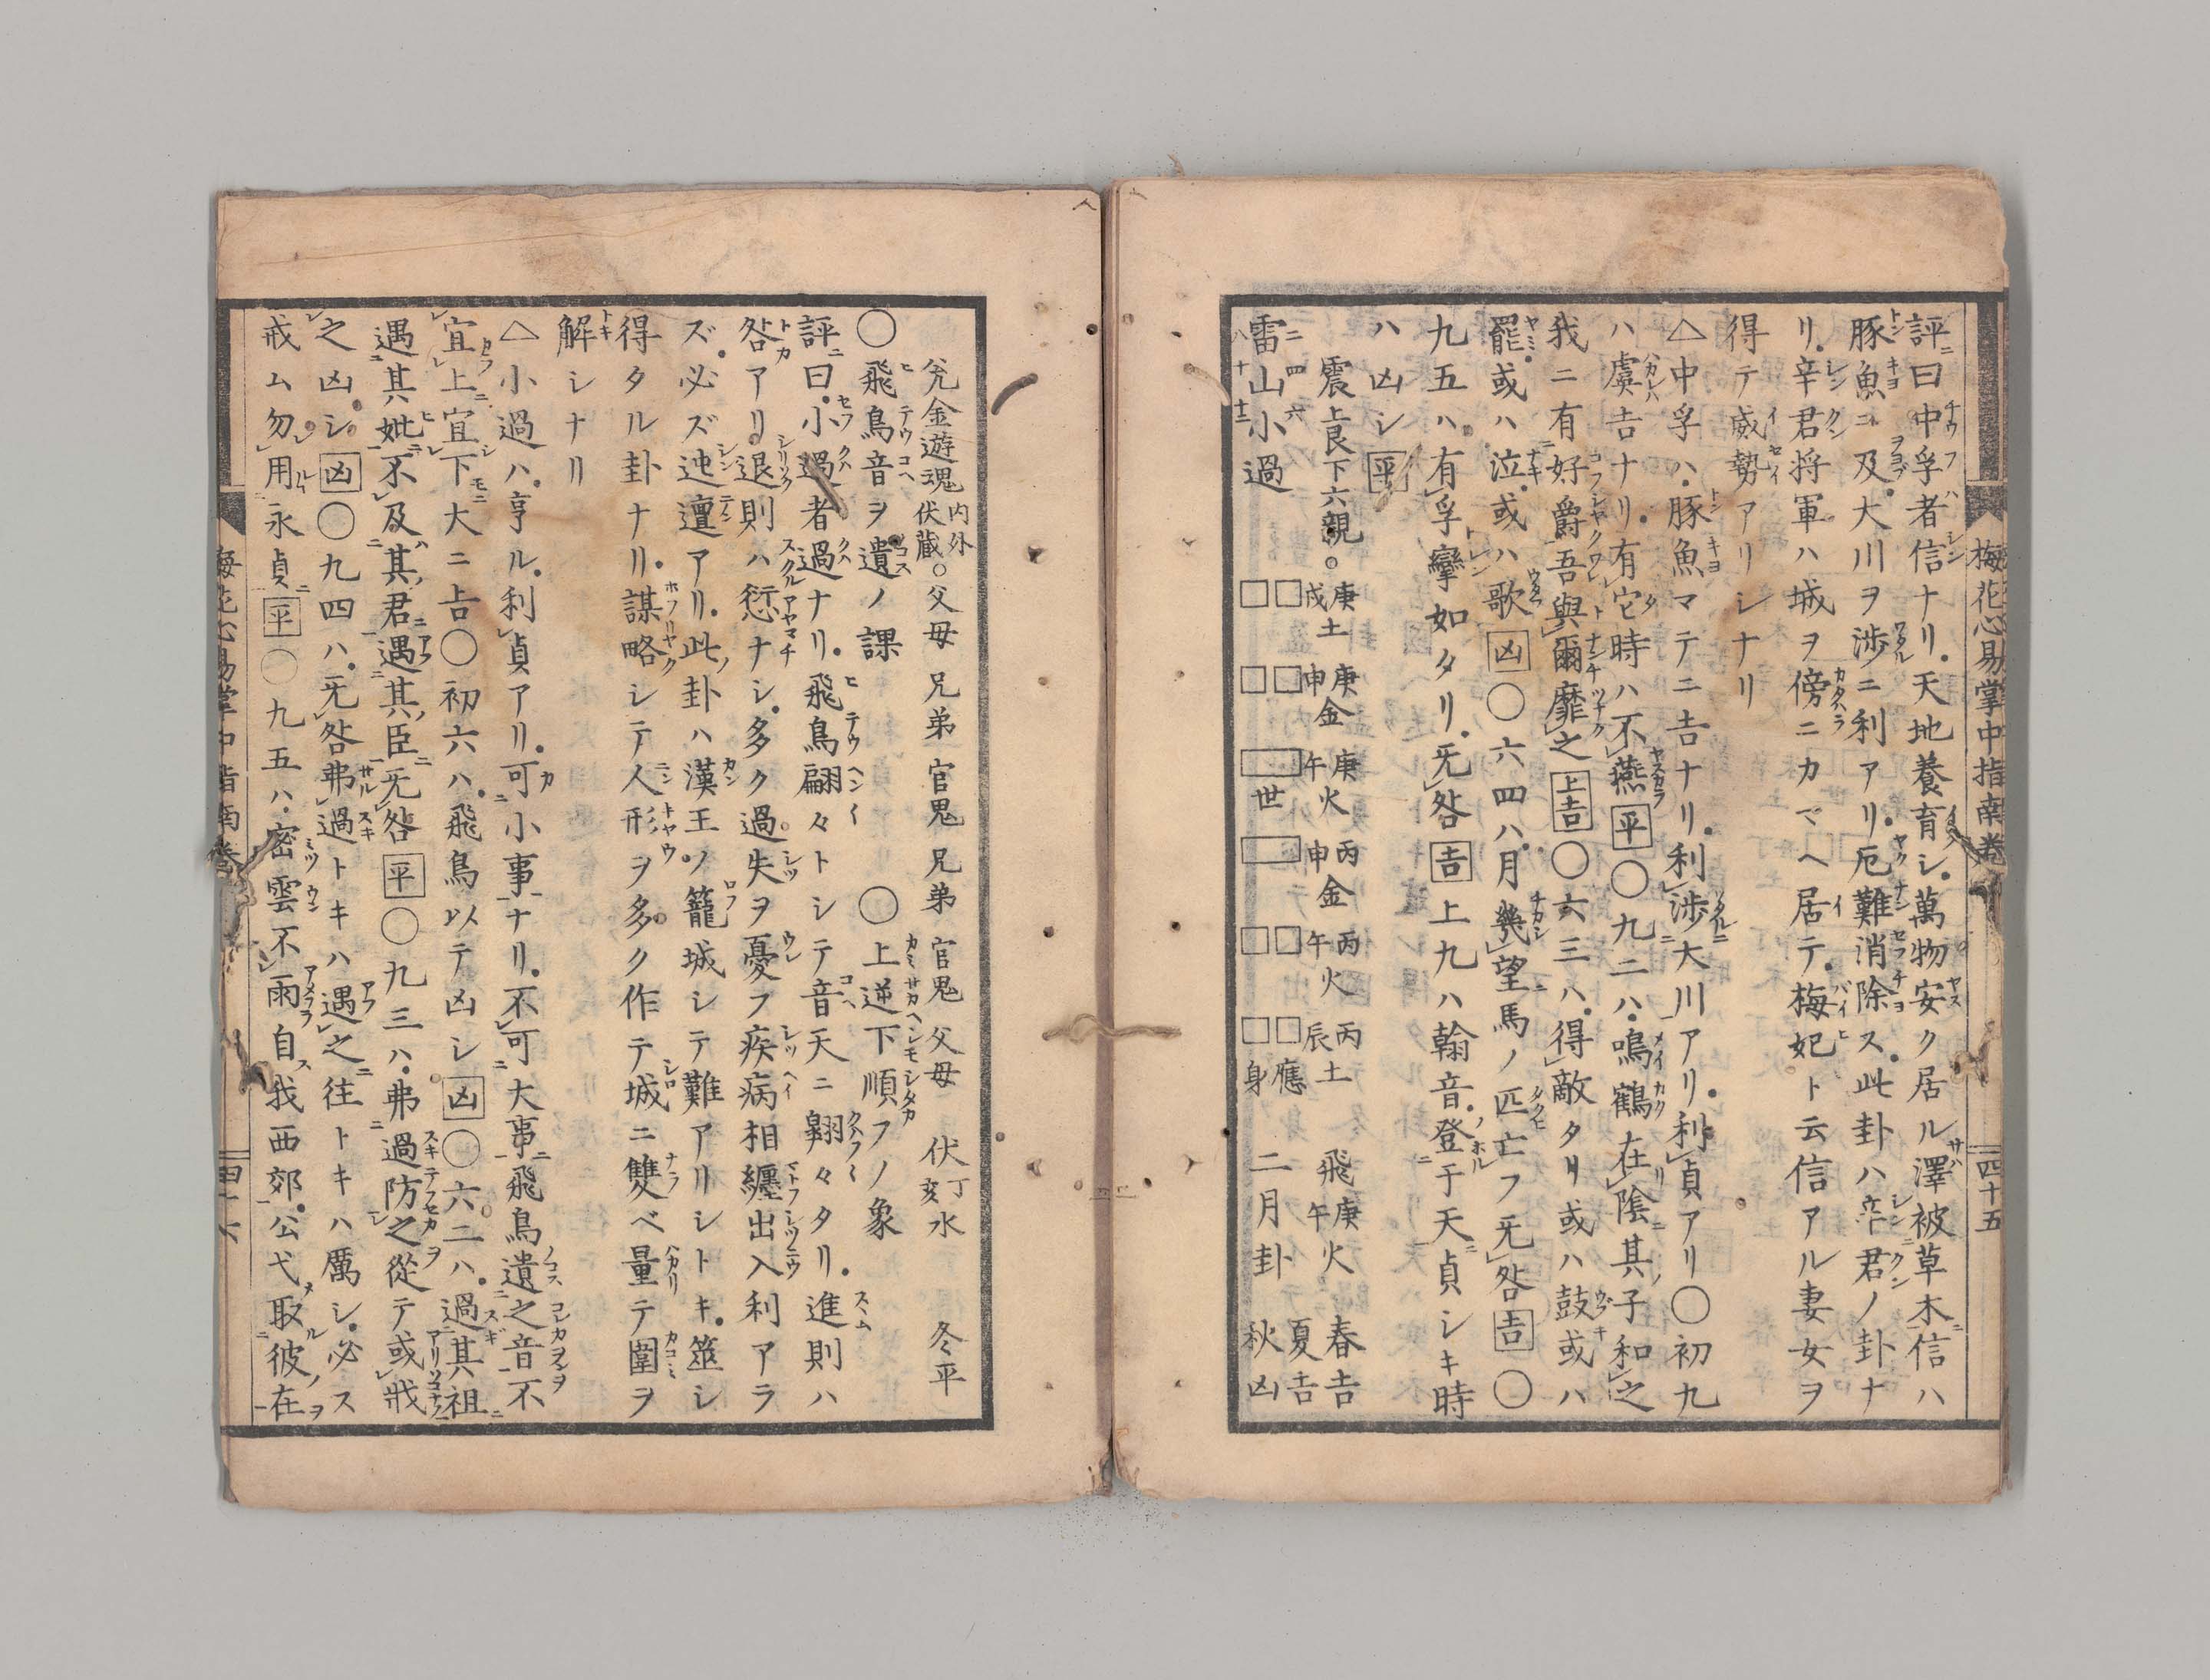 梅花心易掌中指南卷　四十五
評ニ曰中孚者信ナリ天地養育シ萬物安ク居ル澤被草木信ハ
豚魚ニ及大川ヲ渉ニ利アリ厄難消除ス此卦ハ辛君ノ卦ナ
リ辛君将軍ハ城ヲ傍ニカマヘ居テ梅妃ト云信アル妻女ヲ
得テ威勢アリシナリ
△中孚ハ豚魚マテニ吉ナリ利渉大川アリ利貞アリ〇初九
ハ虞吉ナリ有它時ハ不燕平〇九二ハ鳴鶴在陰其子和之
我ニ有好爵吾與爾靡之上吉〇六三ハ得敵タリ或ハ鼓或ハ
罷或ハ泣或ハ歌凶〇六四ハ月幾望馬ノ匹亡フ无咎吉〇
九五ハ有孚攣如タリ无咎吉上九ハ翰音登于天貞シキ時
ハ凶シ平
震上艮下六親〇庚戌土　庚申金　庚午火世　丙申金　丙午火　丙辰土應身　飛庚午火　二月卦　春吉夏吉秋凶
雷山小過
二四六八十十二
兊金遊魂内外伏藏〇父母　兄弟　官鬼　兄弟　官鬼　父母　伏丁亥水　冬平
〇飛鳥音ヲ遺ノ課　〇上逆下順フノ象
評ニ曰小過者過ナリ飛鳥翩々トシテ音天ニ翺々タリ進則ハ
咎アリ退則ハ愆ナシ多ク過失ヲ憂フ疾病相纏出入利アラ
ズ必ズ迍邅アリ此卦ハ漢王ノ籠城シテ難アリシトキ筮シ
得タル卦ナリ謀略シテ人形ヲ多ク作テ城ニ雙ベ量テ圍ヲ
解シナリ
△小過ハ亨ル利貞アリ可小事ナリ不可大事飛鳥遺之音不
宜上宜下大ニ吉〇初六ハ飛鳥以テ凶シ凶〇六二ハ過其祖
遇其妣不及其君遇其臣无咎平〇九三ハ弗過防之從テ或戕
之凶シ凶〇九四ハ无咎弗過トキハ遇之往トキハ厲シ必ス
戒ム勿用永貞平〇九五ハ密雲不雨自我西郊公弋取彼在
梅花心易掌中指南卷　四十六